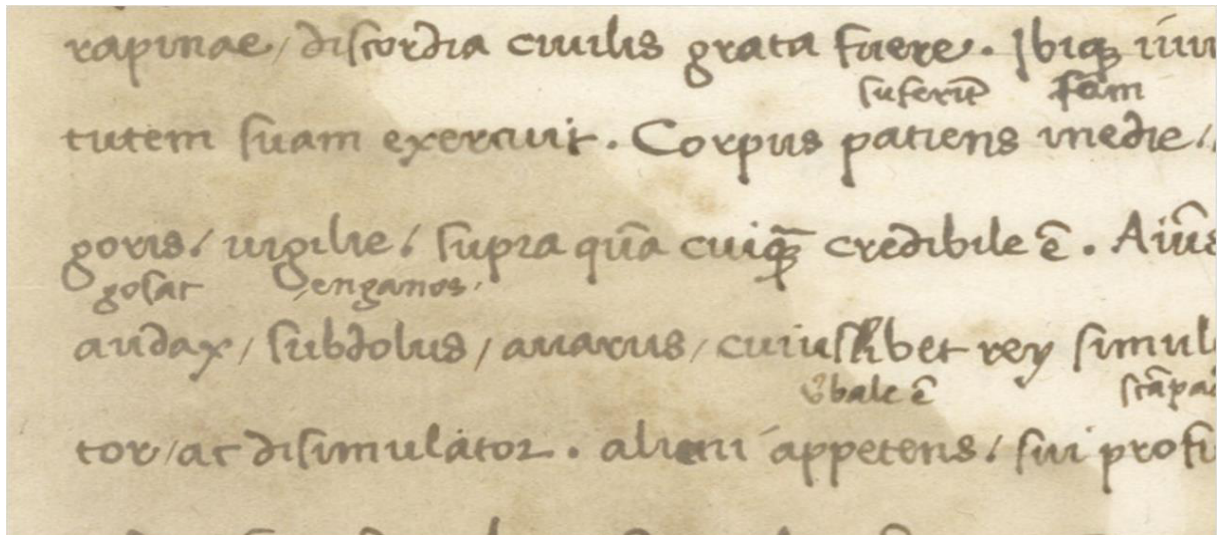 rapinae, discordia ciuilis grata fuere. Ibiq; iuu
suferiт̄ fam
tutem suam exercuit. Corpus patiens inedie,
goris, uigilie, supra qua̅ cuiq̄; credibile ē. Aiu̅s
gosar enganos
audax, subdolus, auarus, cuiuslibet rey simul
bale ē sca̅pa
tor, ac disimulator. alieni appetens, sui profu